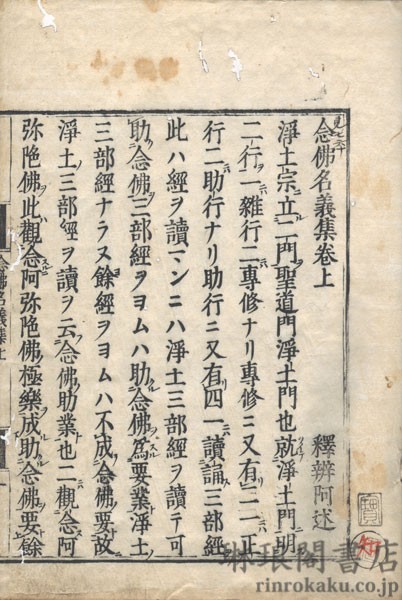 念佛名義集卷上
釋辨阿述
淨土宗立二門聖道門淨土門也就淨土門明
二行一雜行二專修ナリ專修ニ又有二一正
行二助行ナリ助行ニ又有四一讀誦三部經
此ハ經ヲ讀マンニハ淨土三部經ヲ讀テ可
助念佛三部經ヲヨムハ助念佛爲要業淨土
三部經ナラヌ餘經ヲヨムハ不成念佛要故
淨土三部經ヲ讀ヲ云念佛助業也二觀念阿
弥陁佛此觀念阿弥陁佛極樂成助念佛要餘
念佛名義集上
琳琅閣書店
rinrokaku.co.jp